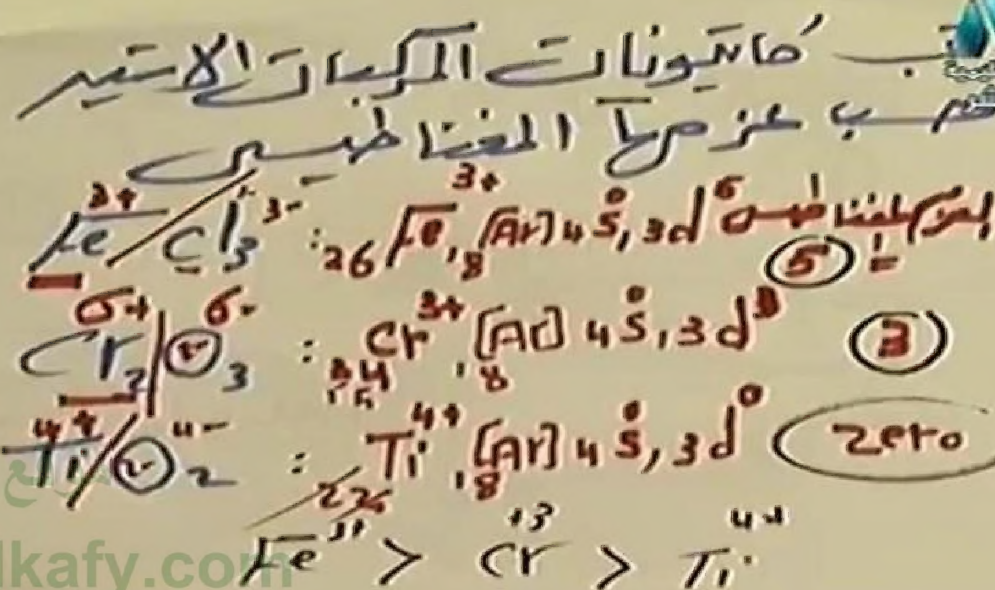 كاتيونات المركبات الاتيه
حسب عزمها المغناطيسى
Fe³⁺/Cl₃³⁻ : ₂₆Fe³⁺, [₁₈Ar] 4s⁰, 3d⁵ ⑤
Cr₂⁶⁺|O₃⁶⁻ : Cr³⁺, [₁₈Ar] 4s⁰, 3d³ ③
Ti⁴⁺/O₂⁴⁻ : ₂₂Ti⁴⁺, [₁₈Ar] 4s⁰, 3d⁰ zero
Fe³⁺ > Cr⁺³ > Ti⁴⁺
lkafy.com